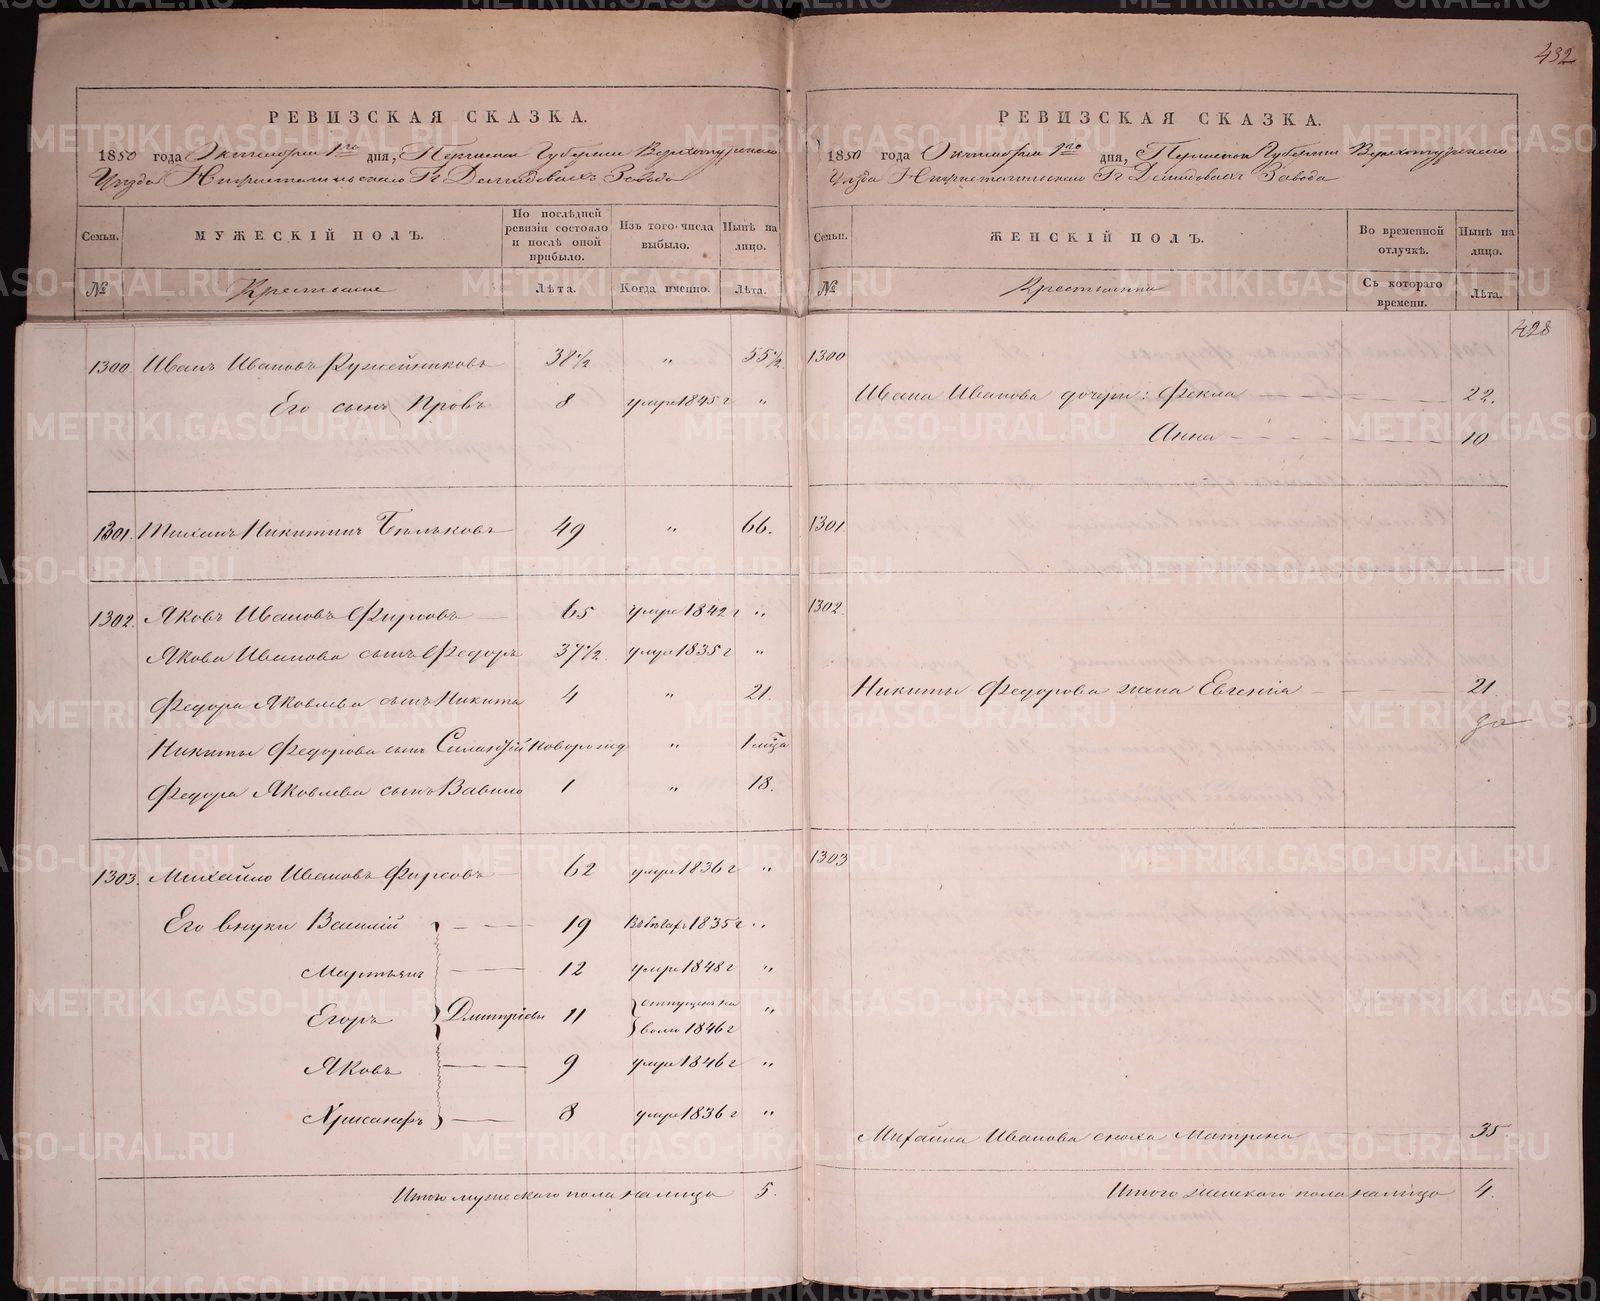 432
РЕВИЗСКАЯ СКАЗКА.
1850 года Октября 1го дня, Пермской Губернии Верхотурскаго
Уезда Нижнетагильскаго Гг. Демидовыхъ Завода
Семьи. МУЖЕСКІЙ ПОЛЪ. По послѣдней ревизіи состояло и послѣ оной прибыло. Изъ того числа выбыло. Нынѣ на лицо.
№ Крестьяне Лѣта. Когда именно. Лѣта.
1300 Иванъ Ивановъ Ружейниковъ 38 1/2 " 55 1/2
Его сынъ Провъ 8 умре 1845 г "
1301. Тихонъ Никитинъ Бѣльковъ 49 " 66.
1302. Яковъ Ивановъ Фирсовъ 65 умре 1842 г "
Якова Иванова сынъ Федоръ 37 1/2 умре 1835 г "
Федора Яковлева сынъ Никита 4 " 21.
Никиты Федорова сынъ новорожд " 1 мѣца
Федора Яковлева сынъ Вавило 1 " 18.
1303. Михайло Ивановъ Фирсовъ 62 умре 1836 г "
Его внуки Василій 19 Въ бѣгахъ 1835 г "
Мартьянъ 12 умре 1848 г "
Егоръ Дмитріевы 11 отпущенъ на волю 1846 г "
Яковъ 9 умре 1846 г "
Хрисанфъ 8 умре 1836 г "
Итого мужескаго пола налицо 5.
РЕВИЗСКАЯ СКАЗКА.
1850 года Октября 1го дня, Пермской Губерніи Верхотурскаго
Уезда Нижнетагильскаго Гг Демидовыхъ Завода
Семьи. ЖЕНСКІЙ ПОЛЪ. Во временной отлучкѣ. Нынѣ на лицо.
№ Крестьянки Съ котораго времени. Лѣта.
428
1300
Ивана Иванова дочери: Фекла 22.
Анна 10
1301
1302.
Никиты Федорова жена Евгенія 21
1303
Михайла Иванова сноха Матрена 35
Итого женскаго пола налицо 4.
METRIKI.GASO-URAL.RU